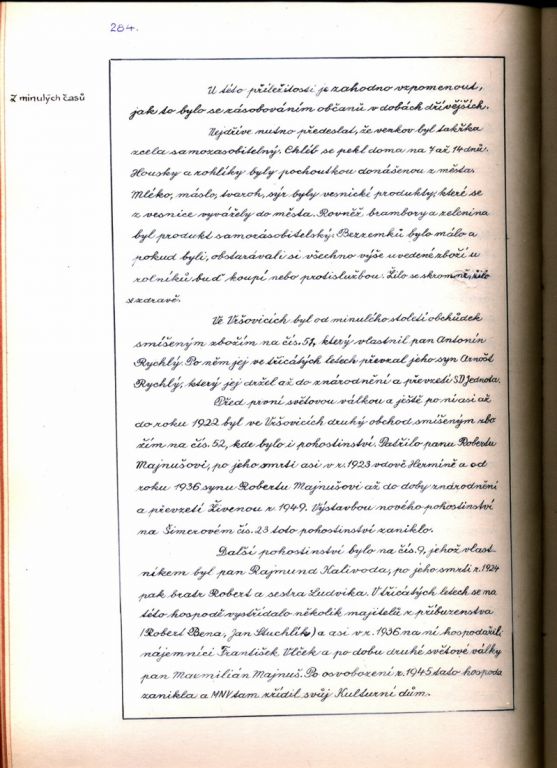 284.
Z minulých časů
U této příležitosti je zahodno vzpomenout,
jak to bylo se zásobováním občanů v dobách dřívějších.
Nejdříve nutno předeslat, že venkov byl takřka
zcela samozásobitelný. Chléb se pekl doma na 7 až 14 dnů.
Housky a rohlíky byly pochoutkou donášenou z města.
Mléko, máslo, tvaroh, sýr byly vesnické produkty, které se
z vesnice vyvážely do města. Rovněž brambory a zelenina
byl produkt samozásobitelský. Bezzemků bylo málo a
pokud byli, obstarávali si všechno výše uvedené zboží u
rolníků buď koupí nebo protislužbou. Žilo se skromně, žilo
se zdravě.
Ve Vršovicích byl od minulého století obchůdek
smíšeným zbožím na čís. 51, který vlastnil pan Antonín
Rychlý. Po něm jej ve třicátých letech převzal jeho syn Arnošt
Rychlý, který jej držel až do znárodnění a převzetí SD Jednota.
Před první světovou válkou a ještě po ní asi až
do roku 1922 byl ve Vršovicích druhý obchod smíšeným zbo
žím na čís. 52, kde bylo i pohostinství. Patřilo panu Robertu
Majnušovi, po jeho smrti asi v r. 1923 vdově Hermíně a od
roku 1936 synu Robertu Majnušovi až do doby znárodnění
a převzetí Živenou r. 1949. Výstavbou nového pohostinství
na Šimerovém čís. 23 toto pohostinství zaniklo.
Další pohostinství bylo na čís. 9, jehož vlast-
níkem byl pan Rajmund Kalivoda, po jeho smrti r. 1924
pak bratr Robert a sestra Ludvika. V třicátých letech se na
této hospodě vystřídalo několik majitelů z příbuzenstva
(Robert Bena, Jan Stuchlík) a asi v r. 1936 na ní hospodařili
nájemníci František Vlček a po dobu druhé světové války
pan Maxmilián Majnuš. Po osvobození r. 1945 tato hospoda
zanikla a MNV tam zřídil svůj Kulturní dům.